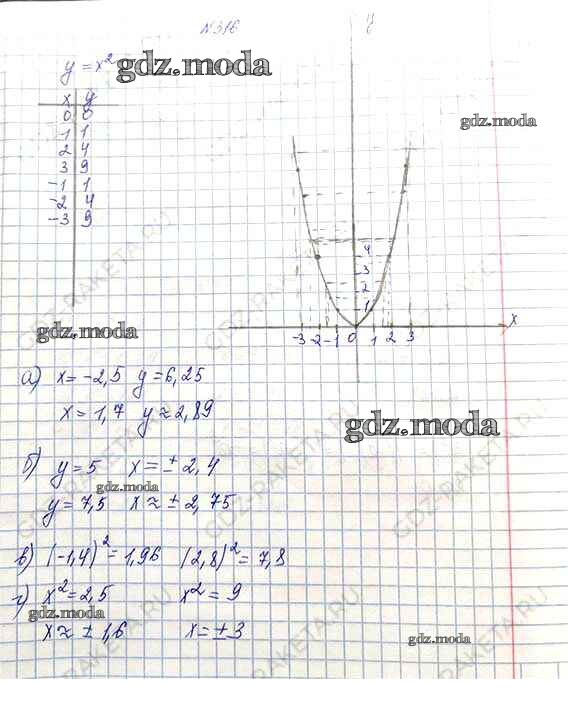 №316
y = x²
gdz.moda
x y
0 0
1 1
2 4
3 9
-1 1
-2 4
-3 9
y
gdz.moda
4
3
2
1
-3 -2 -1 0 1 2 3 x
GDZ-RAKETA.RU
gdz.moda
а) x = -2,5 y = 6,25
x = 1,7 y ≈ 2,89
gdz.moda
б) y = 5 x = ± 2,4
gdz.moda
y = 7,5 x ≈ ± 2,75
GDZ-RAKETA.RU
GDZ-RAKETA.RU
в) (-1,4)² = 1,96 (2,8)² = 7,8
г) x² = 2,5 x² = 9
gdz.moda
x ≈ ± 1,6 x = ± 3
gdz.moda